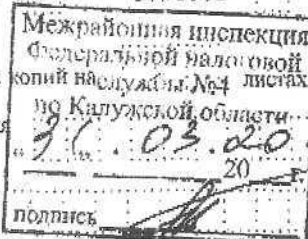 Межрайонная инспекция
Федеральной налоговой
копий на службы №4 листах
по Калужской области
„31„. 03. 20
20 г.
подпись